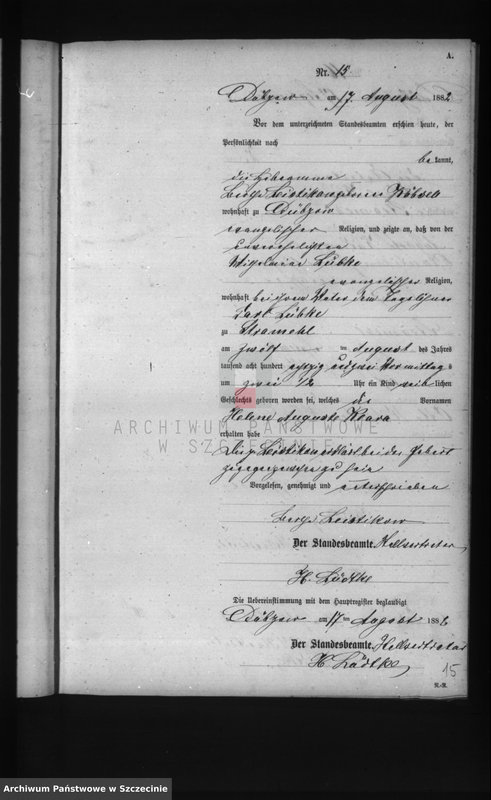 A.
Nr. 15
Dübzow am 17 August 1882
Vor dem unterzeichneten Standesbeamten erschien heute, der
Persönlichkeit nach
bekannt,
die Hebeamme
Leistikow geborene
wohnhaft zu Dübzow
evangelischer Religion, und zeigte an, daß von der
unverehelichten
Wilhelmine Lübke
evangelischer Religion,
wohnhaft bei ihrem Vater dem Tagelöhner
Carl Lübke
zu Stramehl
am zwölf ten August des Jahres
tausend acht hundert achtzig und zwei Vormittags
um zwei 1/2 Uhr ein Kind weiblichen
Geschlechts geboren worden sei, welches die Vornamen
Helene Auguste Klara
erhalten habe
ARCHIWUM PAŃSTWOWE
W SZCZECINIE
Die p. Leistikow erklärt bei der Geburt
zugegen gewesen zu sein
Vorgelesen, genehmigt und unterschrieben
Leistikow
Der Standesbeamte.
H. Lüdtke
Die Uebereinstimmung mit dem Hauptregister beglaubigt
Dübzow am 17 ten August 1882
Der Standesbeamte.
H Lüdtke
15
Archiwum Państwowe w Szczecinie